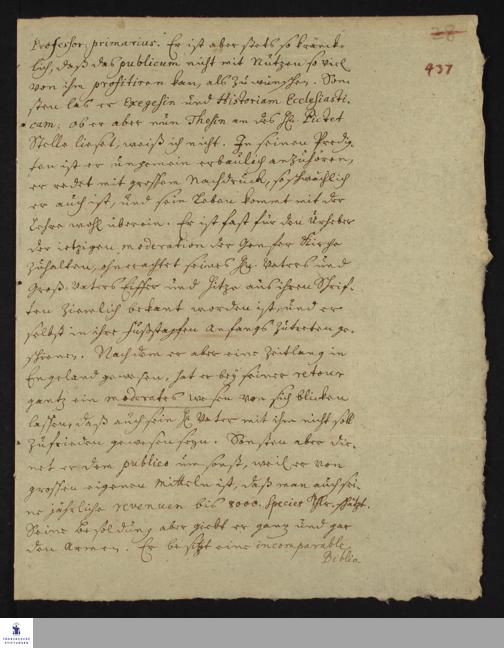 28
437
Professor primarius. Er ist aber stets so kränck-
lich, daß das publicum nicht mit Nutzen so viel
von ihm profitiren kan, als zu wünschen. Son-
sten laß er Exegesin und Historiam Ecclesiasti-
cam; ob er aber nun Thesin an des H. Pictet
Stelle lieset, weiß ich nicht. In seinen Predig-
ten ist er ungemein erbaulich anzuhören,
er redet mit grossem Nachdruck, so schwächlich
er auch ist, und sein Leben kommt mit der
Lehre wohl überein. Er ist fast für den Urheber
der ietzigen moderation der Genfer Kirche
zuhalten, ohnerachtet seines H. Vaters und
Groß-Vaters Eiffer und Hitze aus ihren Schrif-
ten ziemlich bekant worden ist, und er
selbst in ihre Fußstapfen Anfangs zutreten ge-
schienen. Nachdem er aber eine Zeitlang in
Engeland gewesen, hat er bey seiner retour
gantz ein moderates wesen von sich blicken
lassen, daß auch sein H. Vater mit ihm nicht soll
zufrieden gewesen seyn. Sonsten aber die-
net er dem publico umsonst, weil er von
grossen eigenen Mitteln ist, daß man auch sei-
ne jährliche revenuen bis 8000. Species Thlr. schätzt.
Seine Besoldung aber giebt er gantz und gar
den Armen. Er besitzt eine incomparable
Biblio-
FRANCKESCHE
STIFTUNGEN